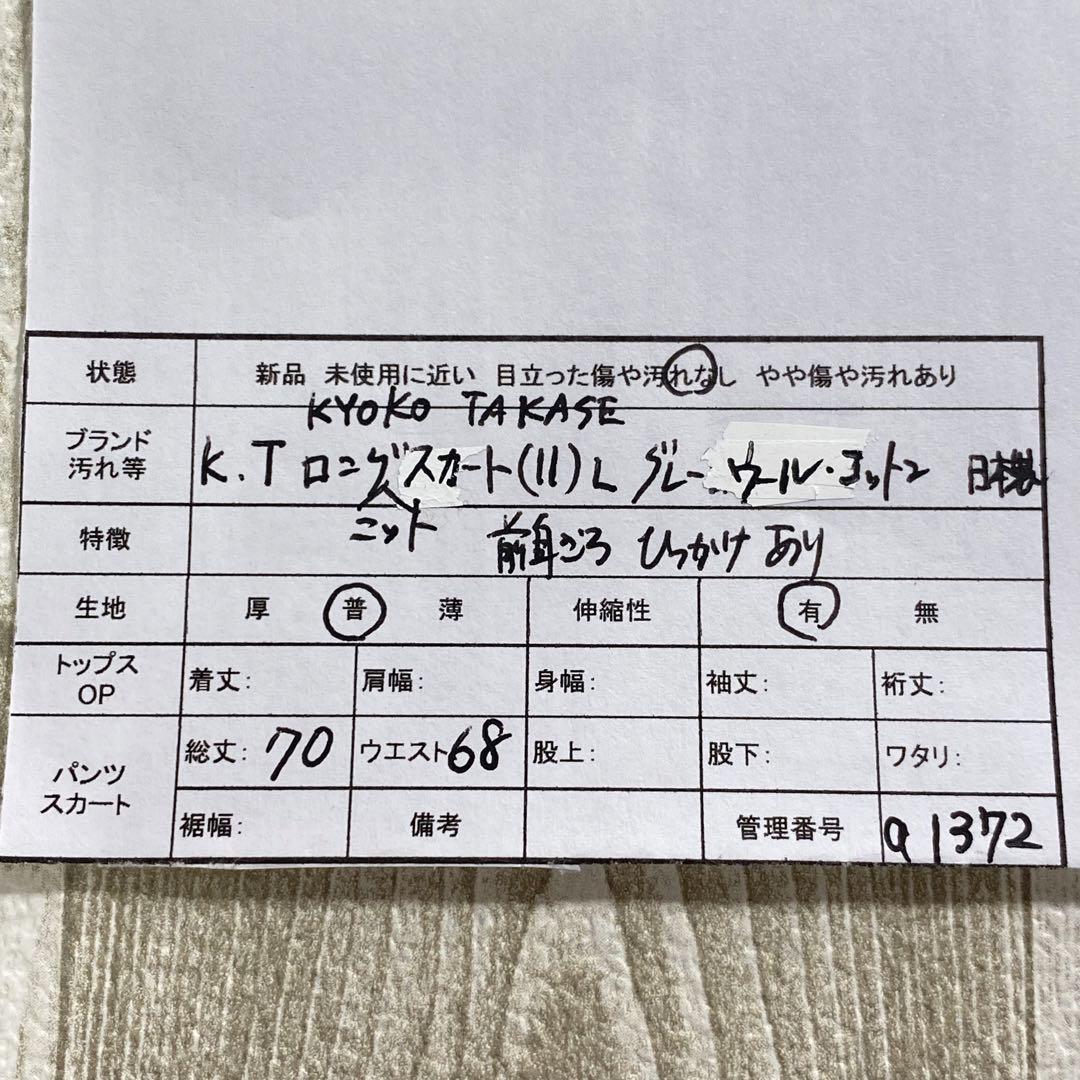 状態 新品 未使用に近い 目立った傷や汚れなし やや傷や汚れあり
KYOKO TAKASE
ブランド
汚れ等
K.T ロングスカート(11)L グレー ウール・コットン 日本製
ニット
特徴 前身ごろ ひっかけ あり
生地 厚 普 薄 伸縮性 有 無
トップス
OP
着丈: 肩幅: 身幅: 袖丈: 裄丈:
パンツ
スカート
総丈: 70 ウエスト68 股上: 股下: ワタリ:
裾幅: 備考 管理番号 a1372